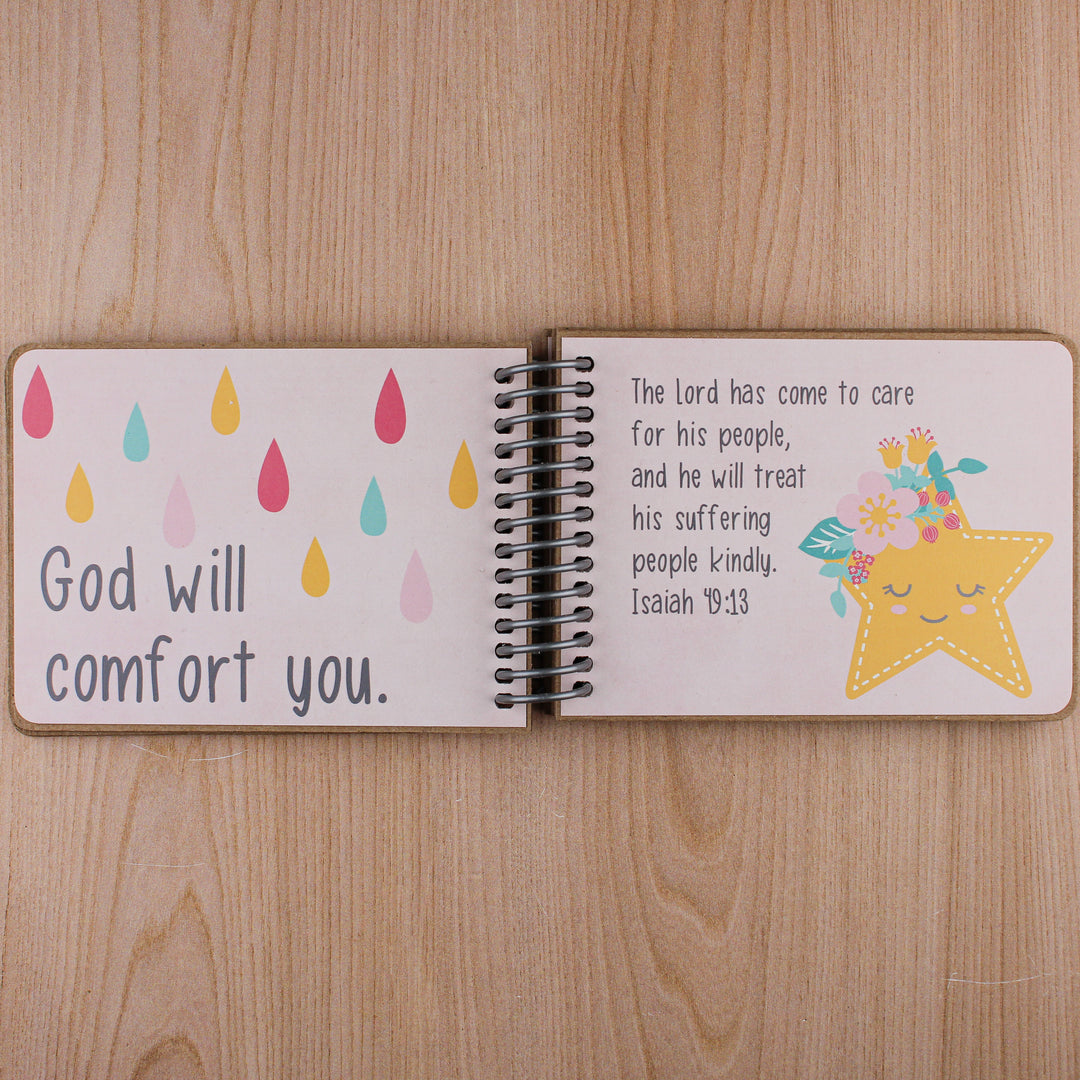 God will
comfort you.
The Lord has come to care
for his people,
and he will treat
his suffering
people kindly.
Isaiah 49:13